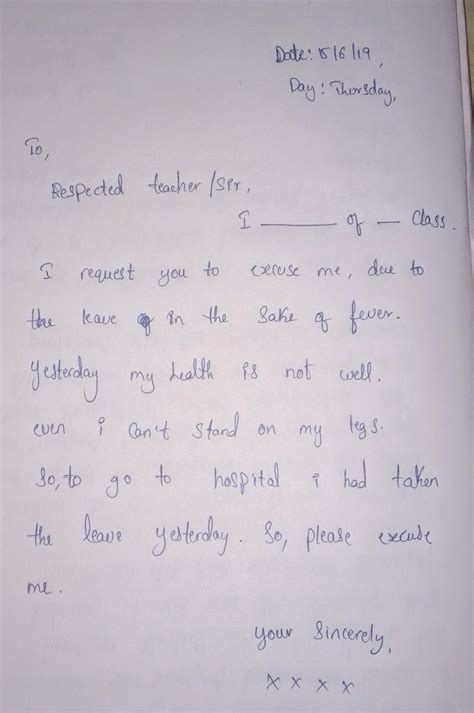 Date: 15/6/19,
Day: Thorsday,
To,
Respected teacher/Sir,
I _______ of __ Class.
I request you to excuse me, due to
the leave in the Sake of fever.
Yesterday my health is not well.
even i can't stand on my legs.
So, to go to hospital i had taken
the leave yesterday. So, please excuse
me.
Your Sincerely,
x x x x